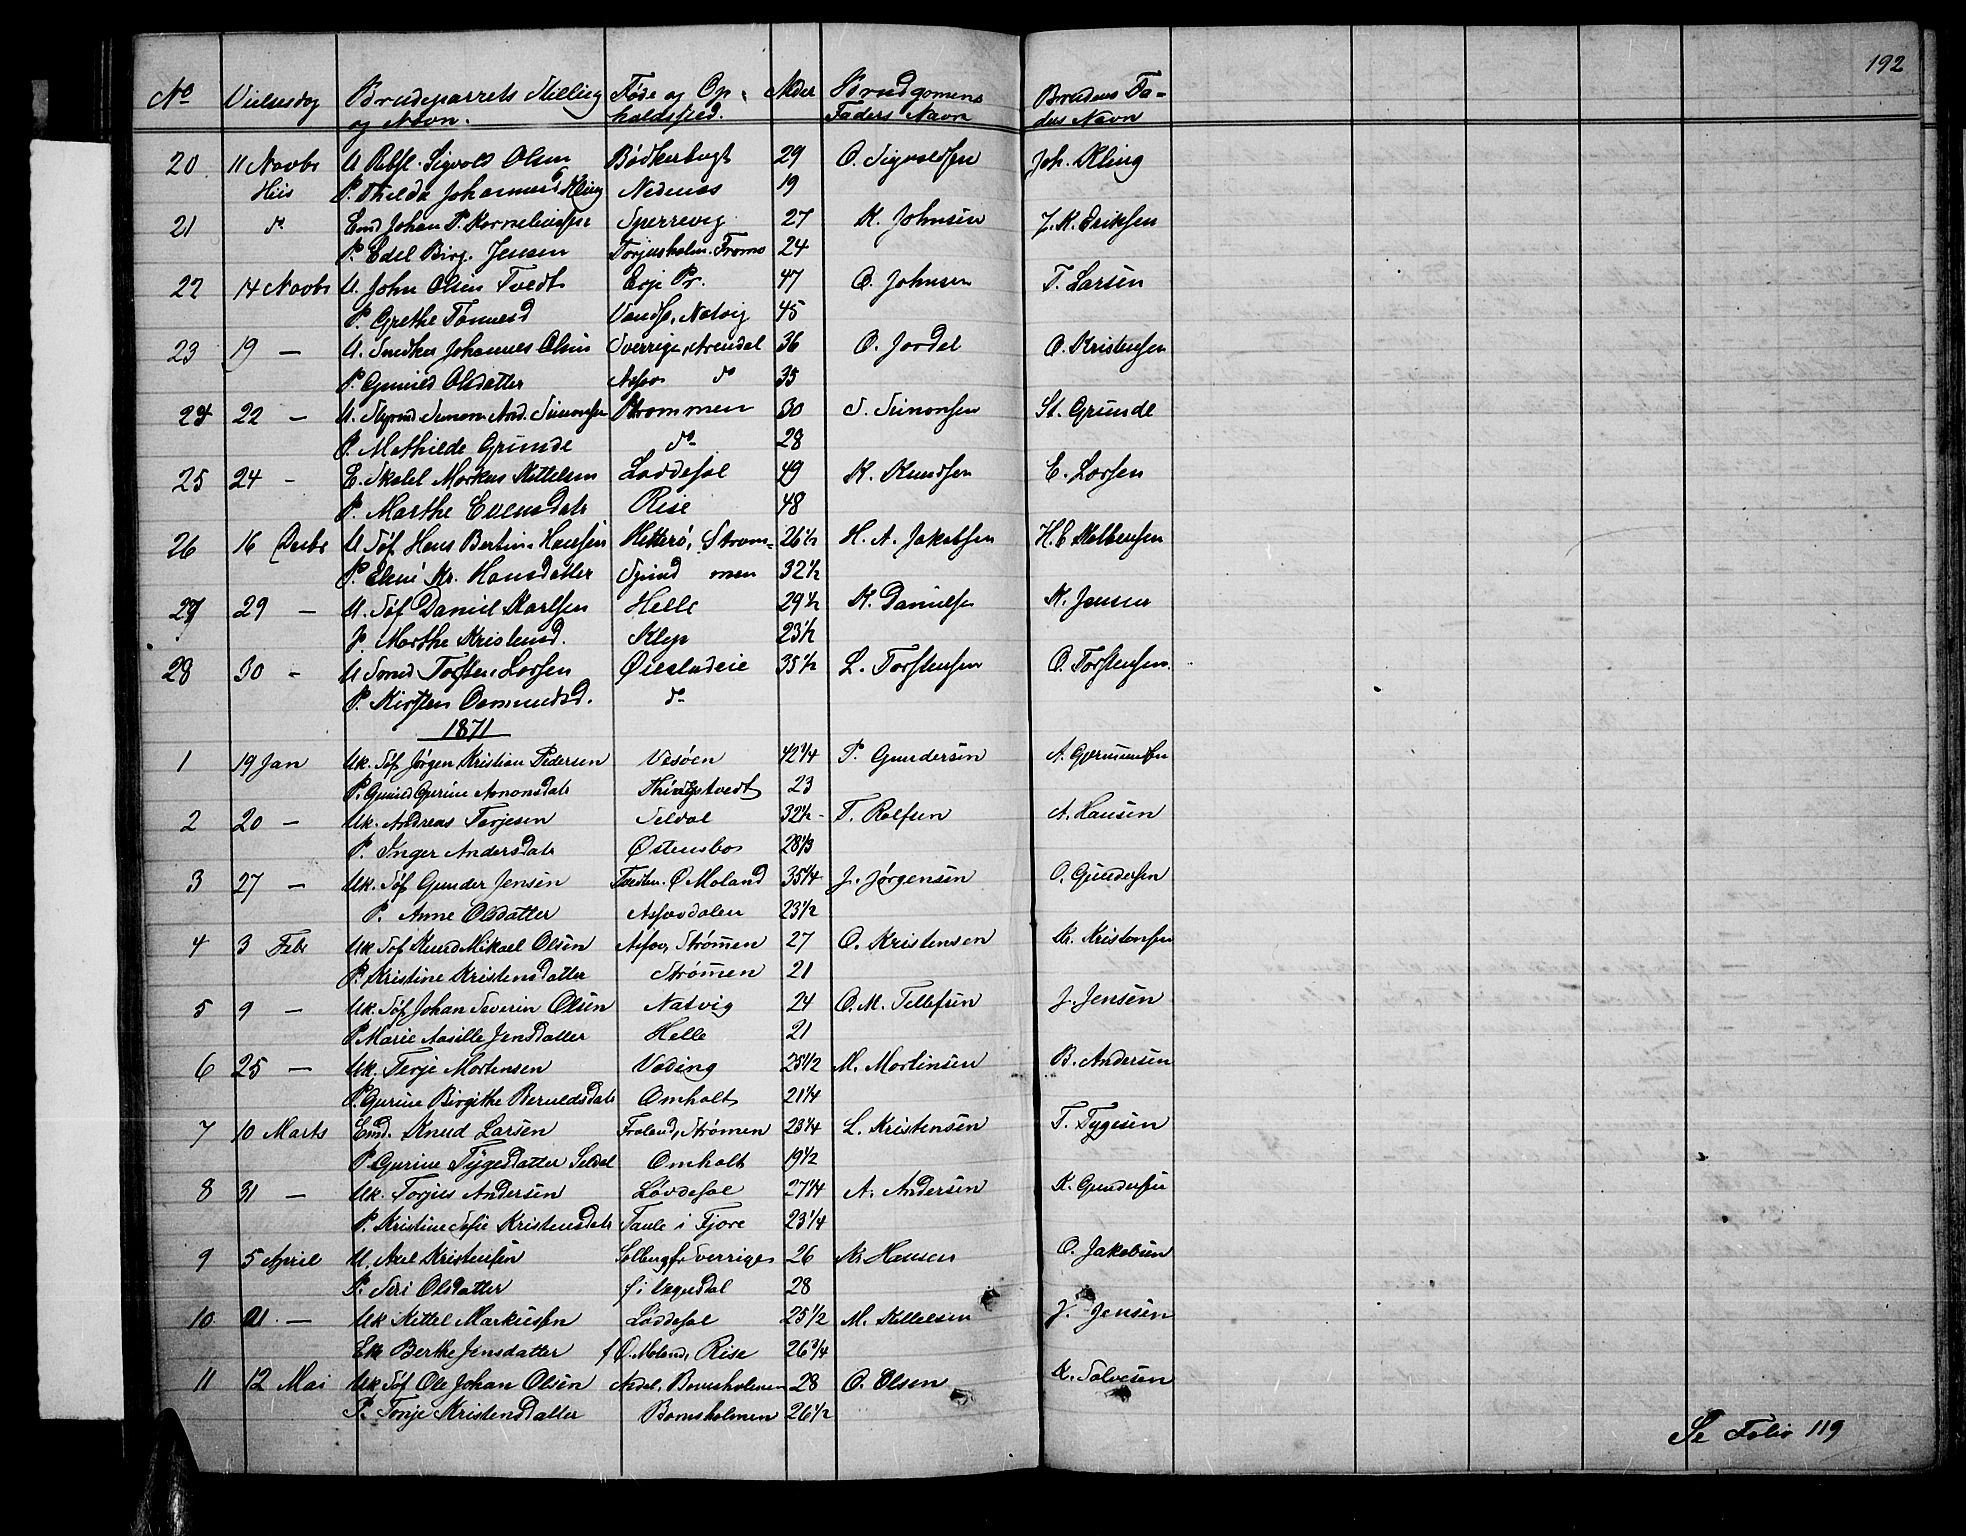 192
No Vielsesdag Brudeparrets Stilling og Navn. Føde og Opholdssted. Alder Brudgomens Faders Navn Brudens Faders Navn
20 11 Novbr U Sigvold Olsen Bødkerbugt 29 O. Sigvoldsen Joh. Kling
Hiis P. Thilda Johannesd Kling Nedenæs 19
21 do Emd Johan P. Korneliussen Sperrevig 27 K. Johnsen J. K. Eriksen
P. Edel Birg. Jensen Torjusholm. Tromø 24
22 14 Novbr U. John Olsen Tvedt Evje Pr. 47 O. Johnsen T. Larsen
P. Grethe Tønnesd Natvig 45
23 19 — U. Snedker Johannes Olsen Sverrige, Arendal 36 O. Jordal O. Kristensen
P. Gunild Olsdatter Asfos do 35
24 22 — U. Simon And. Simonsen Strømmen 30 S. Simonsen St. Grunde
P. Mathilde Grunde do 28
25 24 - E. Markus Kittelsen Løddesøl 49 K. Knudsen E. Larsen
P. Marthe Evensdatr Rise 48
26 16 Decbr U Søf Hans Bertin Hansen Hitterø, Strøm- 26½ H. A. Jakobsen H. E
P. Eleni Kr. Hansdatter Spind men 32½
27 29 — U. Søf Daniel Karlsen Helle 29½ K. Danielsen K. Jensen
P. Marthe Kristensd. Klep 23½
28 30 - U Smed Torsten Larsen Øiestadeie 35½ L. Torstensen O. Torstensen
P. Kirsten Osmundsd. do
1871
1 19 Jan Uk. Søf Jørgen Kristian Pedersen Vesøen 42¼ P. Gundersen A.
P. Gunild Gurine Thingstvedt 23
2 20 — Uk. Andreas Torjesen Seldal 32½ T. Rolfsen A. Hansen
P. Inger Andersdatr Østensbo 28⅓
3 27 — Uk. Søf Gunder Jensen Ø Moland 35¼ J. Jørgensen O. Gundersen
P. Anne Olsdatter Asfosdalen 23½
4 3 Febr Uk Søf Knud Mikael Olsen Asfos, Strømen 27 O. Kristensen Kr. Kristensen
P. Kristine Kristensdatter Strømen 21
5 9 — Uk. Søf Johan Severin Olsen Natvig 24 O. M. Tellefsen J. Jensen
P Marie Aasille Jensdatter Helle 21
6 25 — Uk. Terje Mortensen Veding 25½ M. Mortensen B. Andersen
P. Gurine Birgithe Beruldsdatr Omholt 21¼
7 10 Marts Emd. Knud Larsen Froland, Strømen 23¼ L. Kristensen T. Tygesen
P. Gurine Tygesdatter Seldal Omholt 19½
8 31 — Uk. Torjus Andersen Løvdesøl 27¼ A. Andersen K. Gundersen
P. Kristine Sofie Kristensdatr Taule i Fjære 23¼
9 5 April U. Axel Kristensen Solberg f. Sverrige 26 Kr Hansen O. Jakobsen
P. Siri Olsdatter f i Vegusdal 28
10 21 — Uk Kittel Markussen Løddesøl 25½ M. Kittelsen J. Jensen
Ek Berthe Jensdatter f Ø. Moland, Rise 26¾
11 12 Mai Uk Søf Ole Johan Olsen Bomsholmen 28 O. Olsen K. Salvesen
P. Tonje Kristensdatter Bomsholmen 26½
Se Folio 119